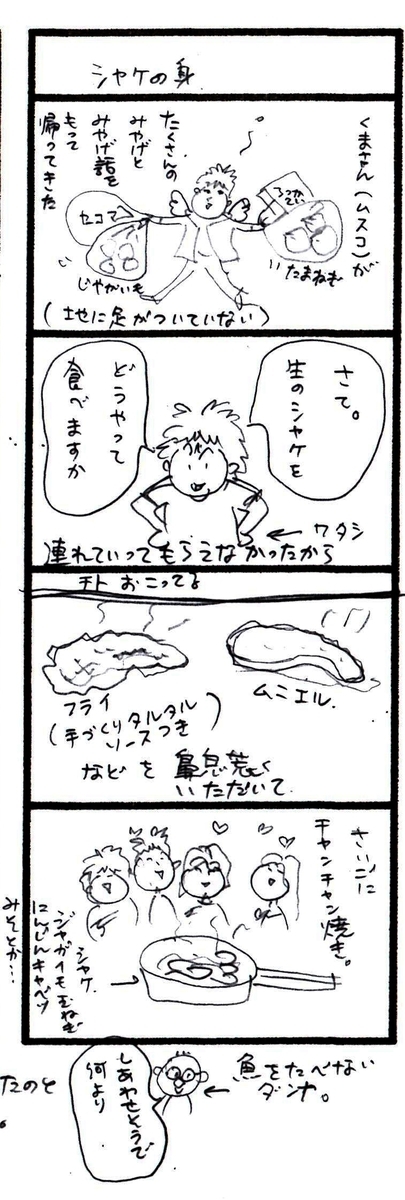 シャケの身
くまさん(ムスコ)が
たくさんの
みやげと
みやげ話を
もって
帰ってきた
セコマ
じゃがいも
たまねぎ
(地に足がついていない)
さて。
生のシャケを
どうやって
食べますか
← ワタシ
連れていってもらえなかったから
チト おこってる
フライ
(手づくりタルタル
ソースつき)
ムニエル.
などを 鼻息荒く
いただいて.
さいごに
チャンチャン焼き。
シャケ.
ジャガイモ玉ねぎ
にんじんキャベツ
みそとか…
しあわせそうで
何より
← 魚をたべない
ダンナ。
たのと